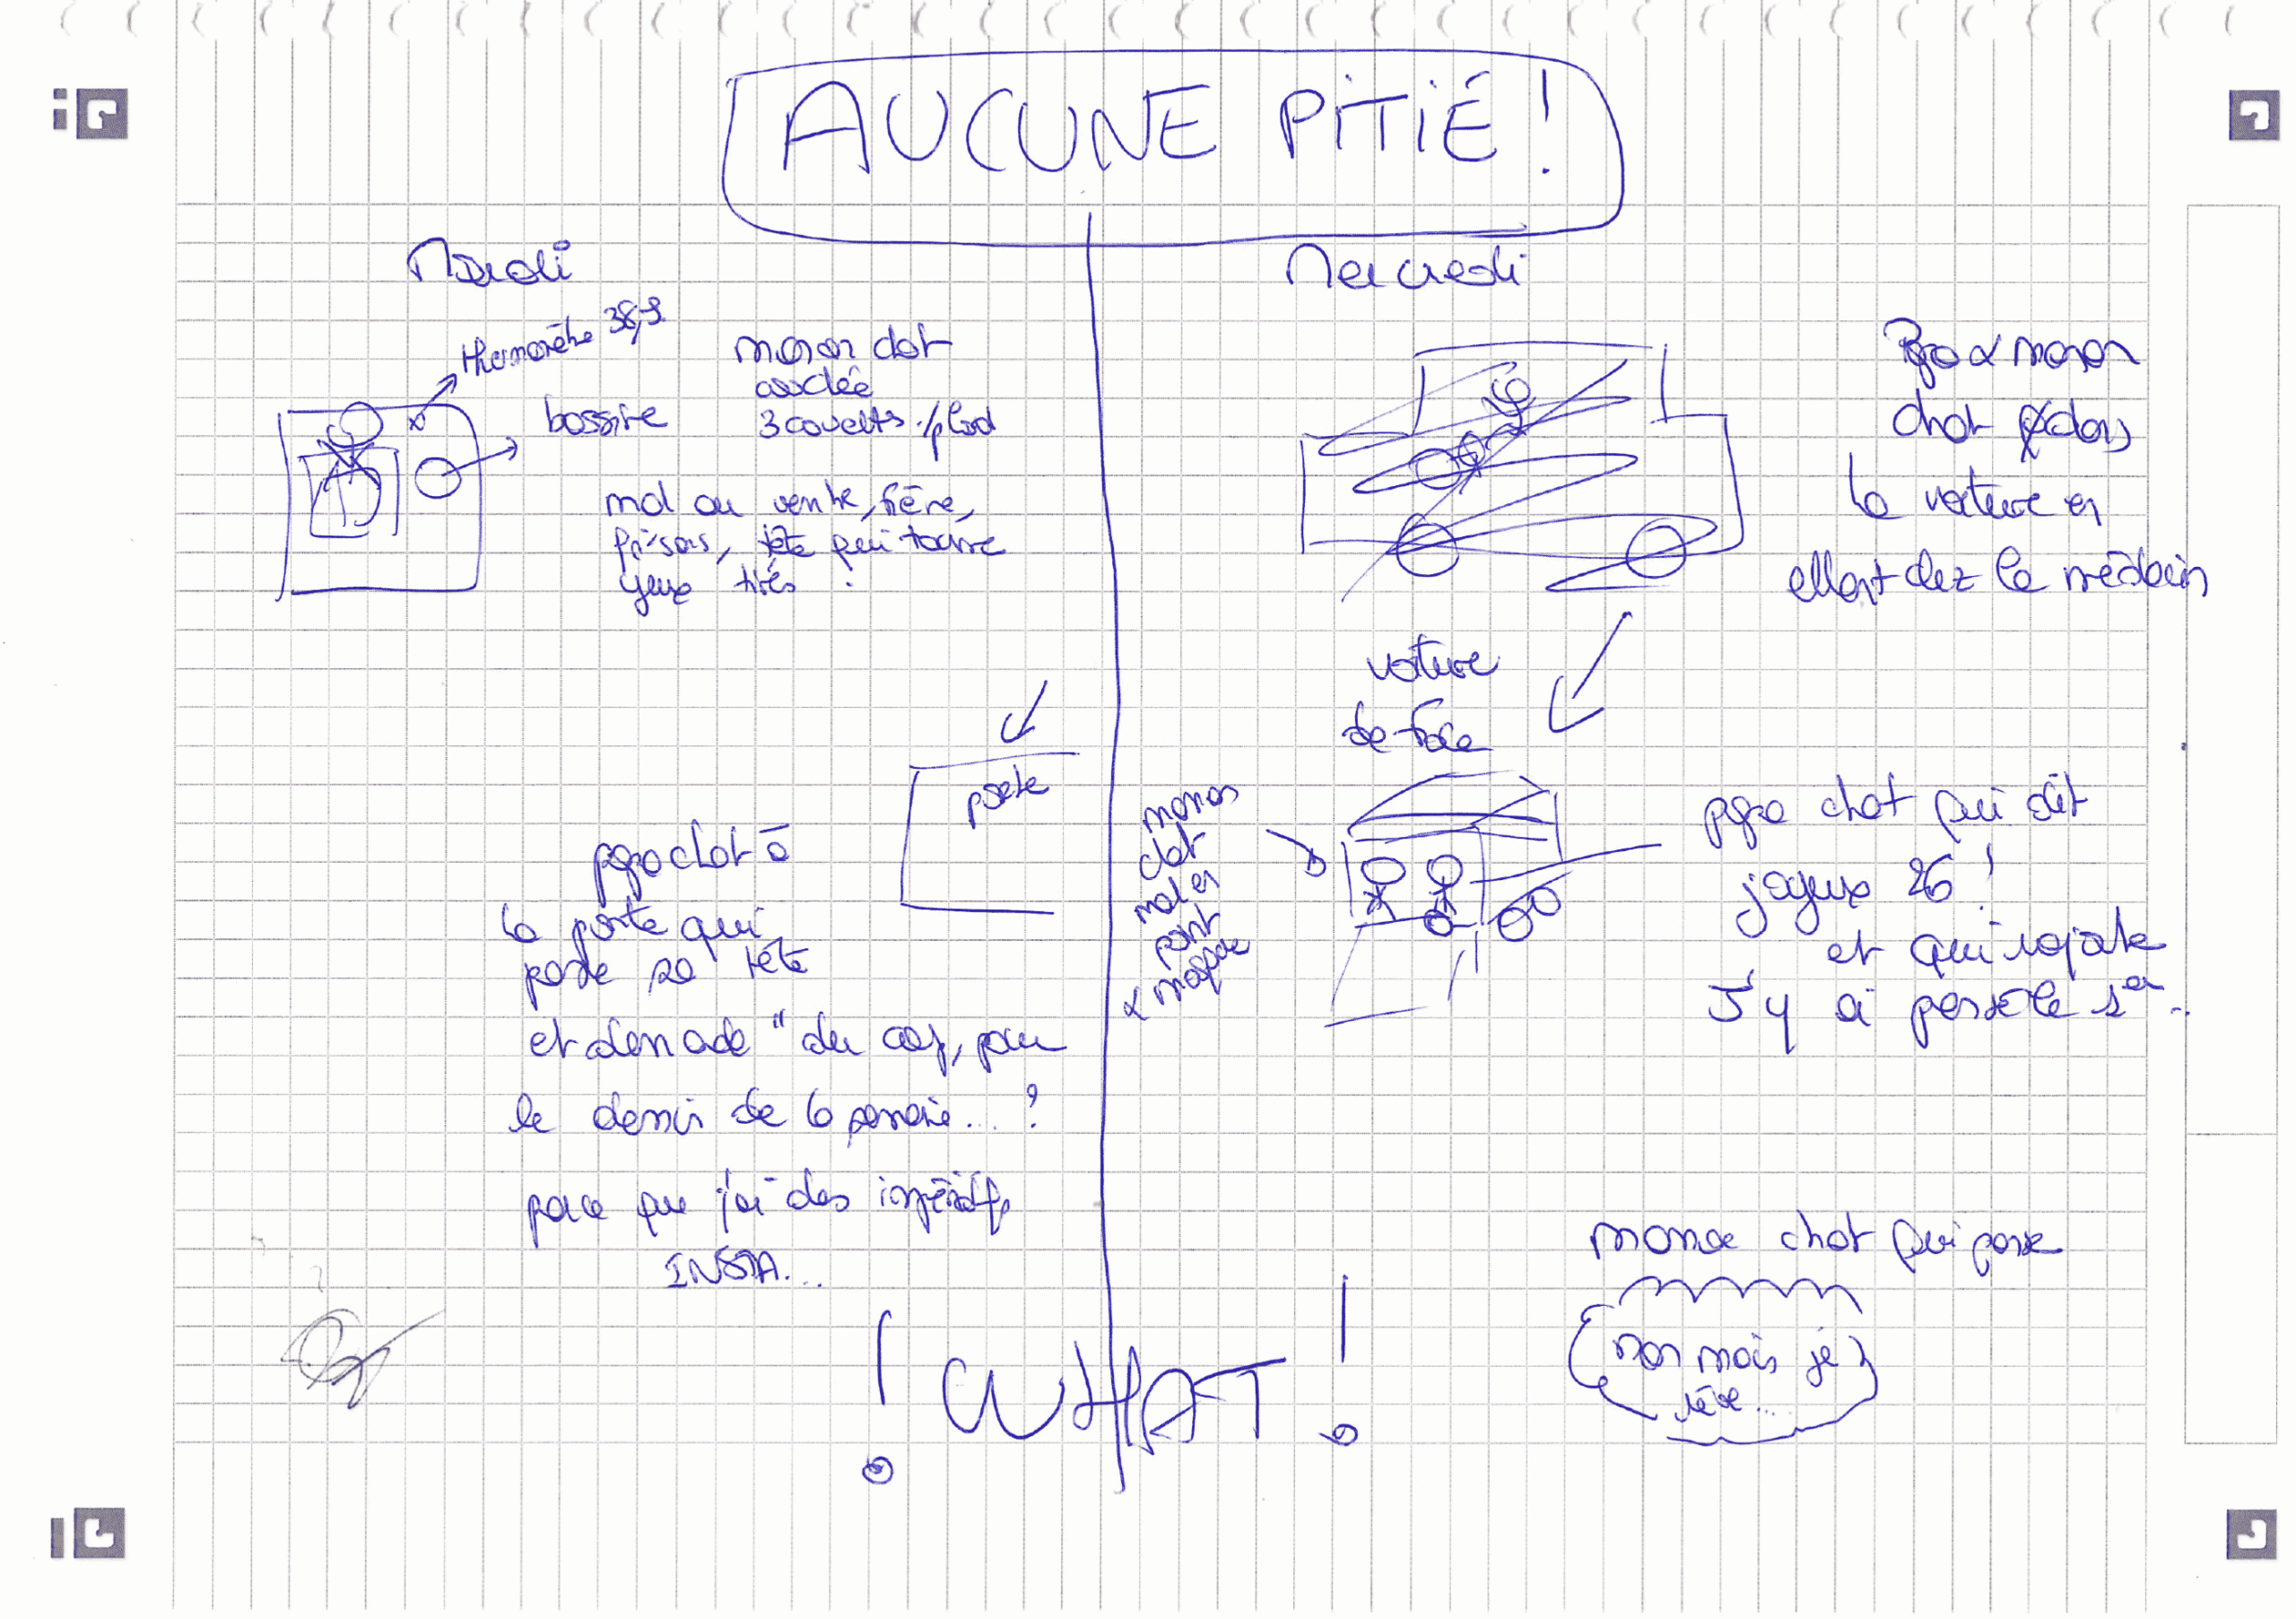 AUCUNE PITIÉ !
Mardi
thermomètre 38,9
bassine
maman chat
couchée
3 couvertures / plaid
mal au ventre, fièvre,
frissons, tête qui tourne
yeux tirés
porte
papa chat à
la porte qui
passe sa tête
et demande "du coup, pour
le dessin de la semaine... ?
parce que j'ai des impératifs
INSTA...
Mercredi
Papa & maman
chat dans
la voiture en
allant chez le médecin
voiture
de face
maman
chat
mal en
point
& masque
papa chat qui dit
joyeux 26 !
et qui rajoute
J'y ai pensé le 1er...
maman chat qui pense
non mais je
rêve...
! WHAT !